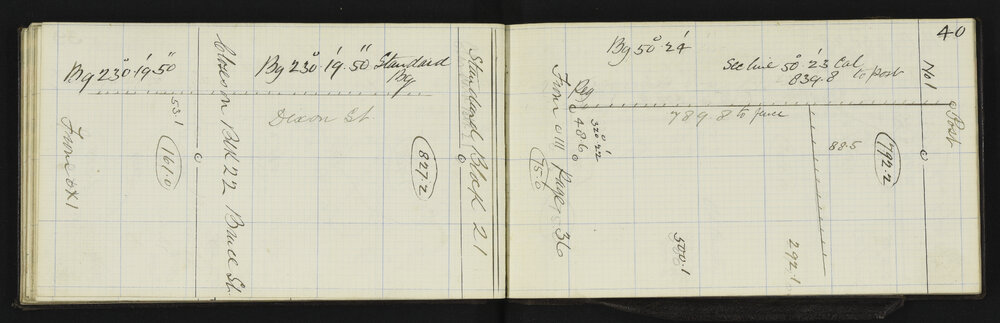 Bg 230° 19' 50"
53.1
161.0
From OX1
Close on Blk 22 Bruce St.
Bg 230° 19' 50" Standard
Brg
Dixon St
827.2
Standard Block 21
40
Bg 50° 24'
See line 50° 23' Cal
839.8 to Post
No 1
Peg
Post
789.8 to fence
320° 22'
48.60
75.0
From O III Page 36
500.1
88.5
792.2
292.1